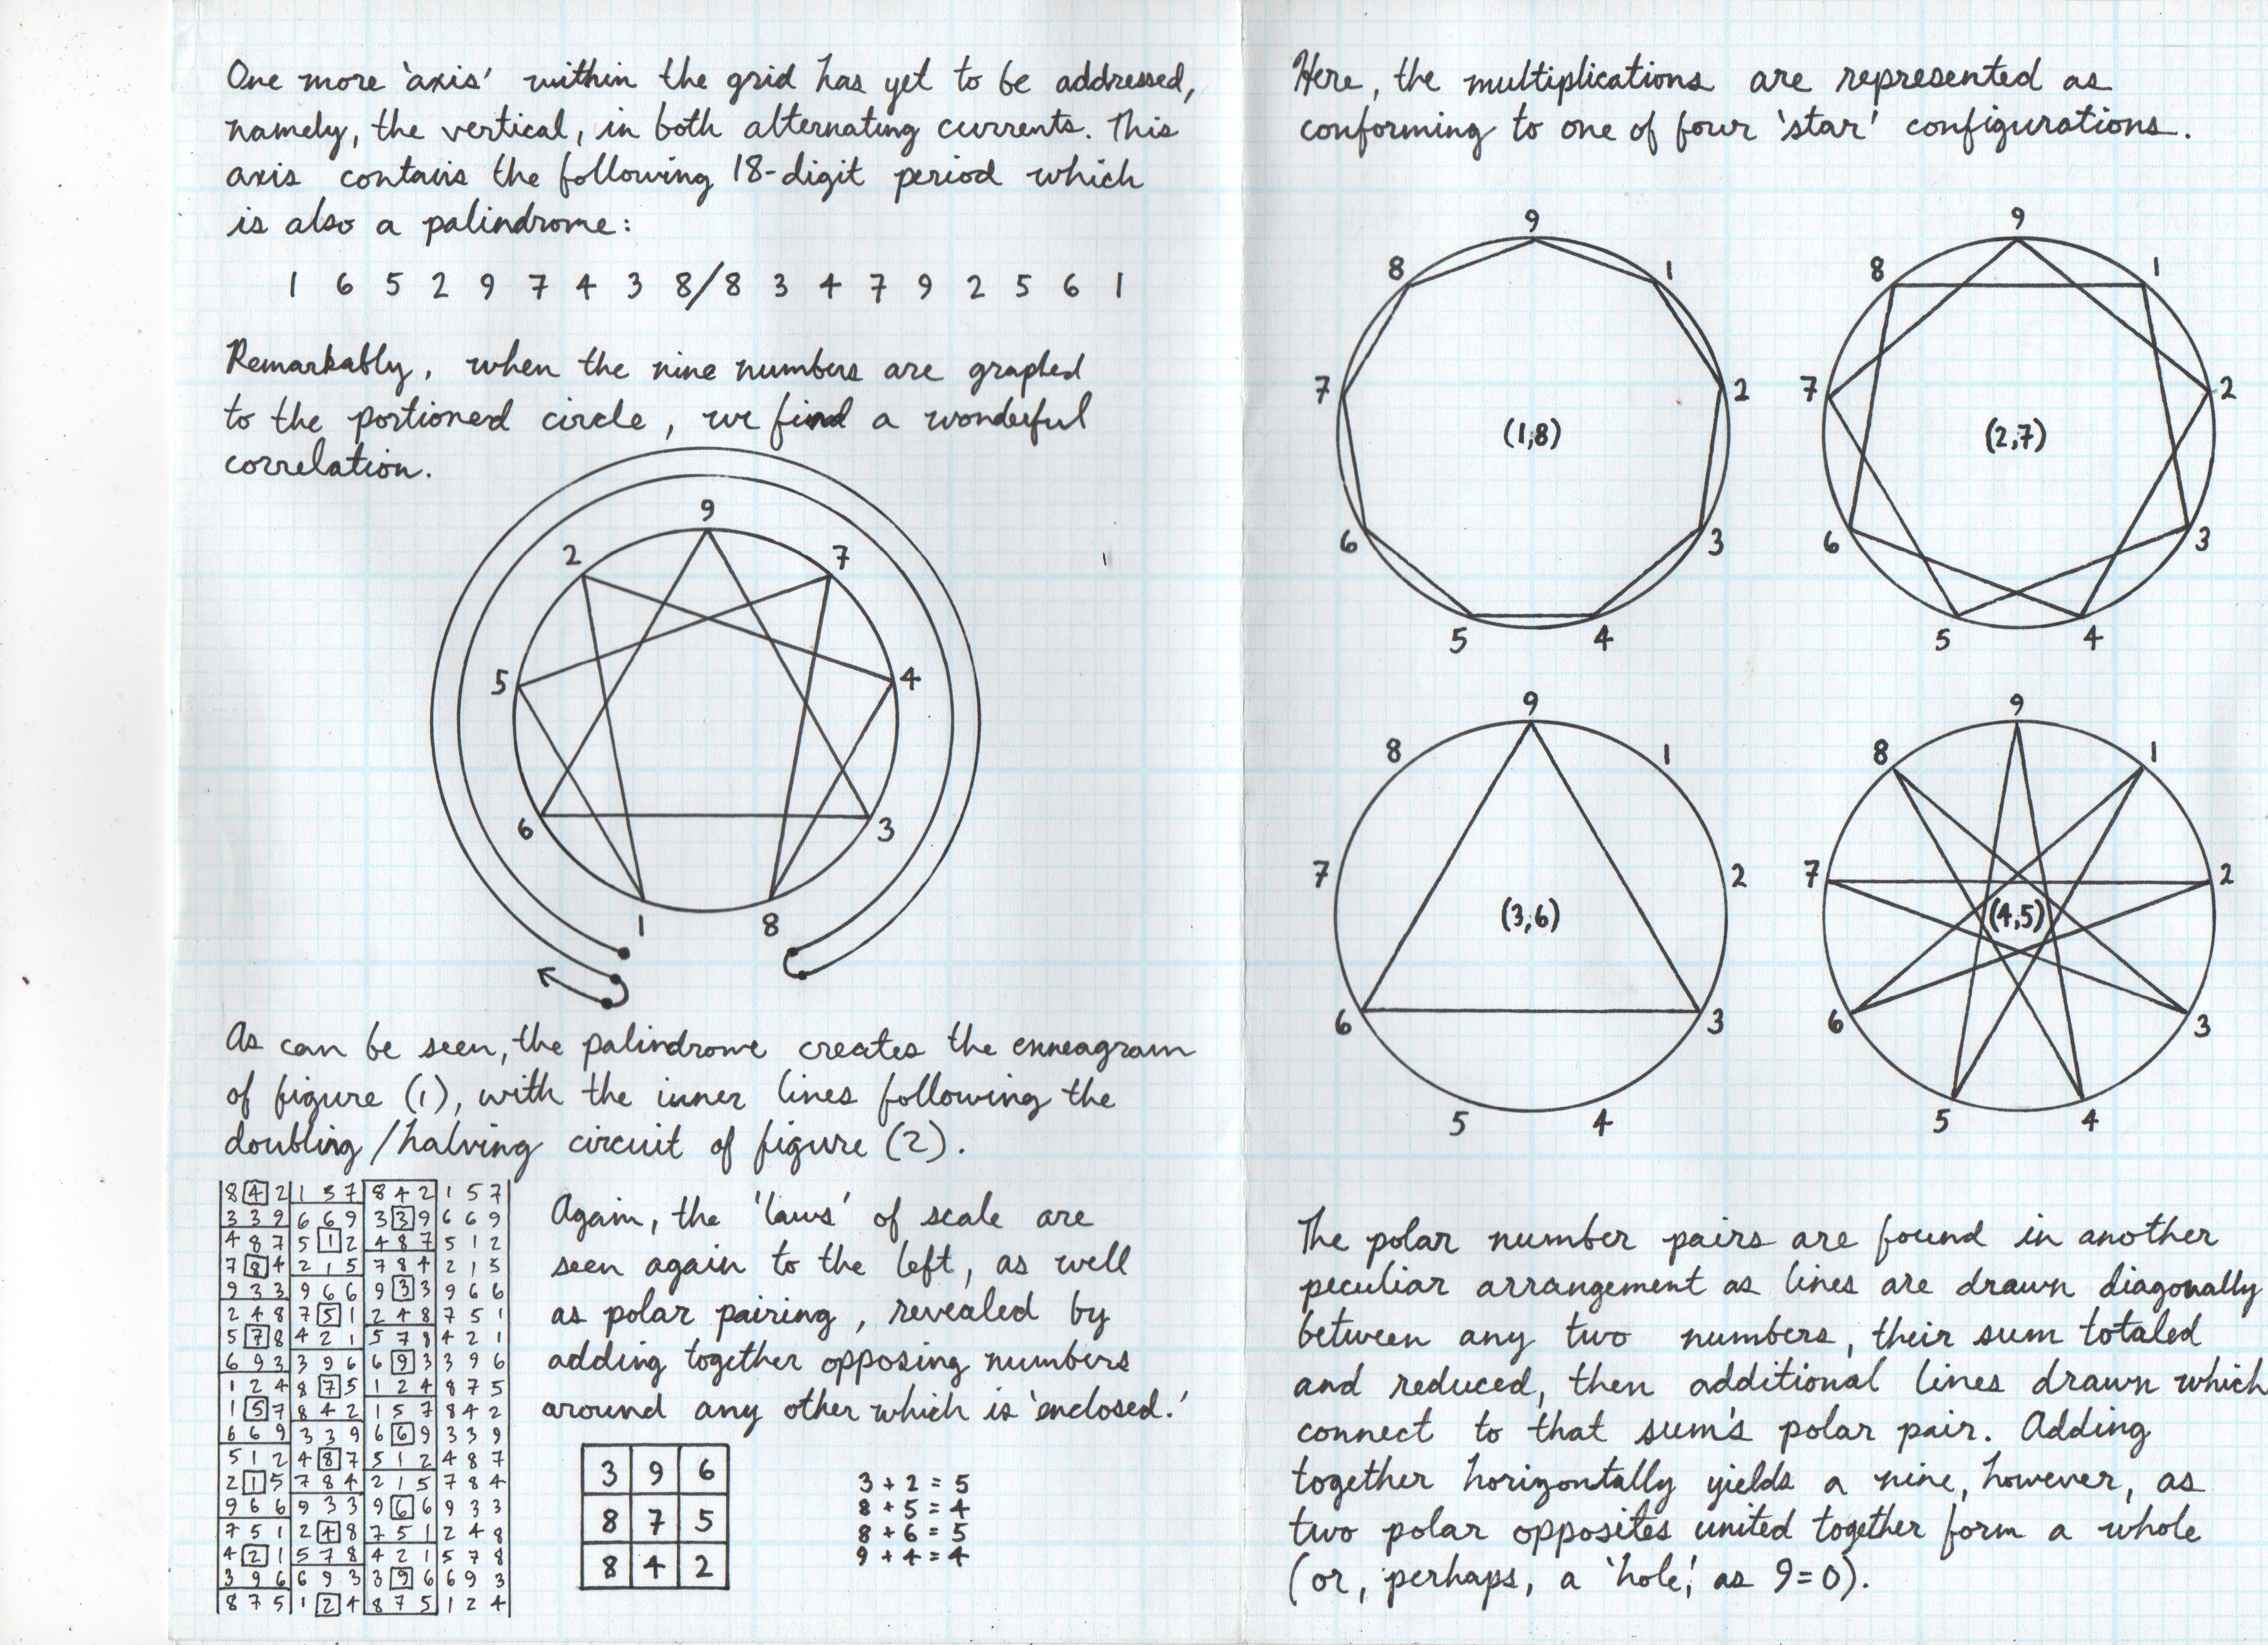 One more 'axis' within the grid has yet to be addressed,
namely, the vertical, in both alternating currents. This
axis contains the following 18-digit period which
is also a palindrome:
1 6 5 2 9 7 4 3 8/8 3 4 7 9 2 5 6 1
Remarkably, when the nine numbers are graphed
to the portioned circle, we find a wonderful
correlation.
9
2 7
5 4
6 3
1 8
As can be seen, the palindrome creates the enneagram
of figure (1), with the inner lines following the
doubling/halving circuit of figure (2).
8 4 2 1 5 7 8 4 2 1 5 7
3 3 9 6 6 9 3 3 9 6 6 9
4 8 7 5 1 2 4 8 7 5 1 2
7 8 4 2 1 5 7 8 4 2 1 5
9 3 3 9 6 6 9 3 3 9 6 6
2 4 8 7 5 1 2 4 8 7 5 1
5 7 8 4 2 1 5 7 8 4 2 1
6 9 3 3 9 6 6 9 3 3 9 6
1 2 4 8 7 5 1 2 4 8 7 5
1 5 7 8 4 2 1 5 7 8 4 2
6 6 9 3 3 9 6 6 9 3 3 9
5 1 2 4 8 7 5 1 2 4 8 7
2 1 5 7 8 4 2 1 5 7 8 4
9 6 6 9 3 3 9 6 6 9 3 3
7 5 1 2 4 8 7 5 1 2 4 8
4 2 1 5 7 8 4 2 1 5 7 8
3 9 6 6 9 3 3 9 6 6 9 3
8 7 5 1 2 4 8 7 5 1 2 4
Again, the 'laws' of scale are
seen again to the left, as well
as polar pairing, revealed by
adding together opposing numbers
around any other which is 'enclosed.'
3 9 6
8 7 5
8 4 2
3 + 2 = 5
8 + 5 = 4
8 + 6 = 5
9 + 4 = 4
Here, the multiplications are represented as
conforming to one of four 'star' configurations.
9
8 1
7 2
(1,8)
6 3
5 4
9
8 1
7 2
(2,7)
6 3
5 4
9
8 1
7 2
(3,6)
6 3
5 4
9
8 1
7 2
(4,5)
6 3
5 4
The polar number pairs are found in another
peculiar arrangement as lines are drawn diagonally
between any two numbers, their sum totaled
and reduced, then additional lines drawn which
connect to that sum's polar pair. Adding
together horizontally yields a nine, however, as
two polar opposites united together form a whole
(or, perhaps, a 'hole,' as 9=0).